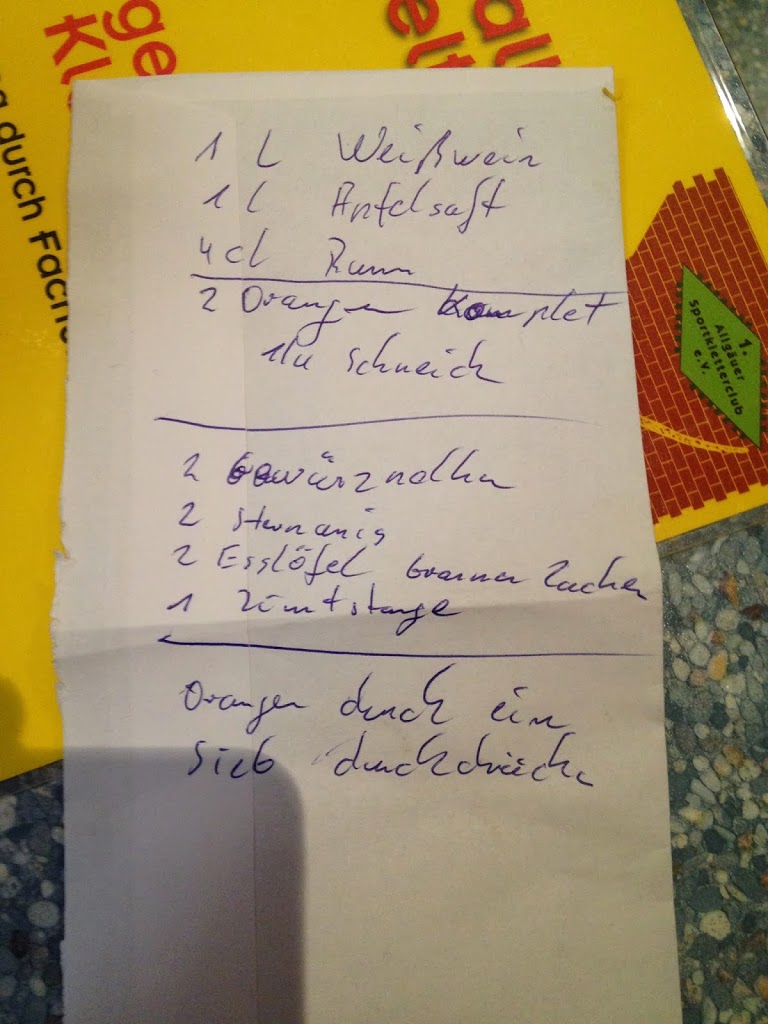 ge
Kl
g durch Fach
all
elt
1 L Weißwein
1 l Apfelsaft
4 cl Rum
2 Orangen komplet
schneid
2 Gewürznelken
2 Sternanis
2 Esslöfel brauner Zucker
1 Zimtstange
Orangen durch ein
Sieb durchdrücke
1.
Allgäuer
Sportkletterclub
e.V.